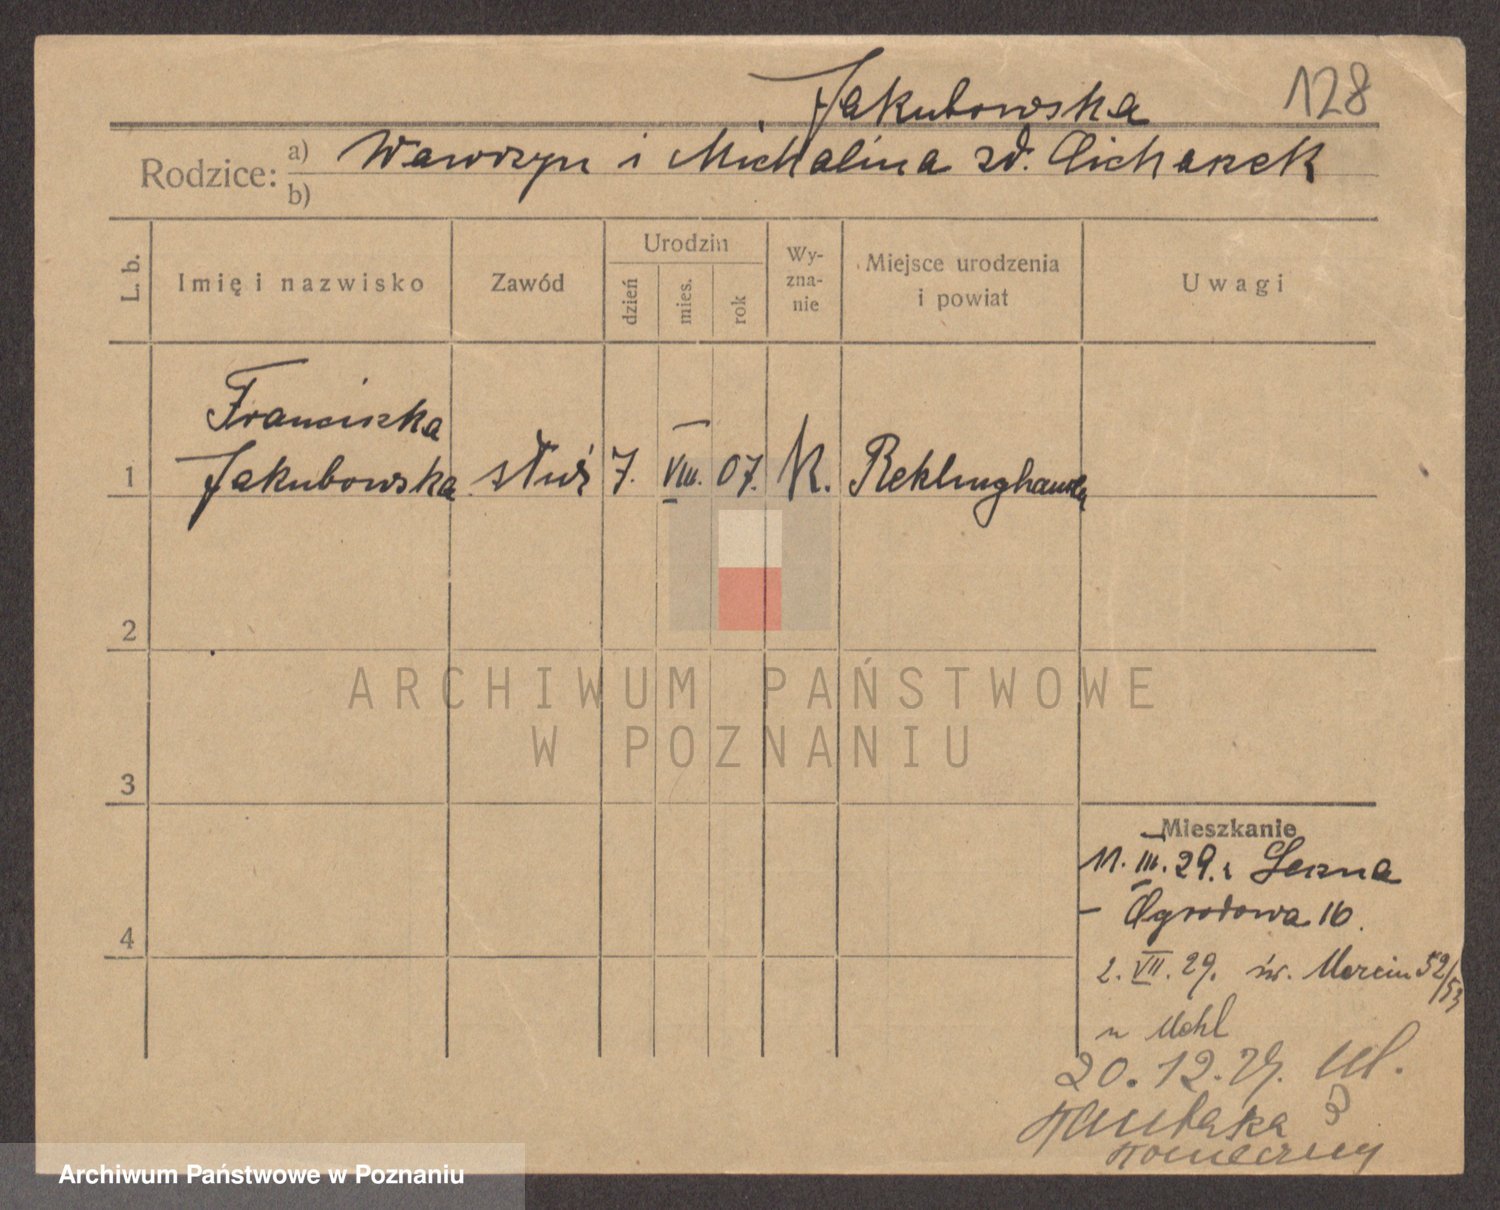 Jakubowska
128
Rodzice: a) Wawrzyn i Michalina zd. Cichaszek
b)
L. b.
Imię i nazwisko
Zawód
Urodzin
dzień
mies.
rok
Wy-
zna-
nie
Miejsce urodzenia
i powiat
Uwagi
Franciszka
1 Jakubowska służ 7. VIII. 07. K. Reklinghausen
2
3
4
ARCHIWUM PAŃSTWOWE
W POZNANIU
Mieszkanie
11. III. 29. z Leszna
– Ogrodowa 16.
2. VII. 29. św. Marcin 52/53
u Mohl
20. 12. 29. ul.
3
Archiwum Państwowe w Poznaniu